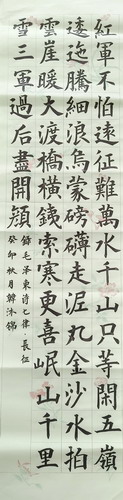 紅軍不怕遠征難萬水千山只等閑五嶺
逶迤騰細浪烏蒙磅礴走泥丸金沙水拍
雲崖暖大渡橋橫鐵索寒更喜岷山千里
雪三軍過后盡開顏
錄毛澤東詩七律·長征
癸卯秋月韓沐錦